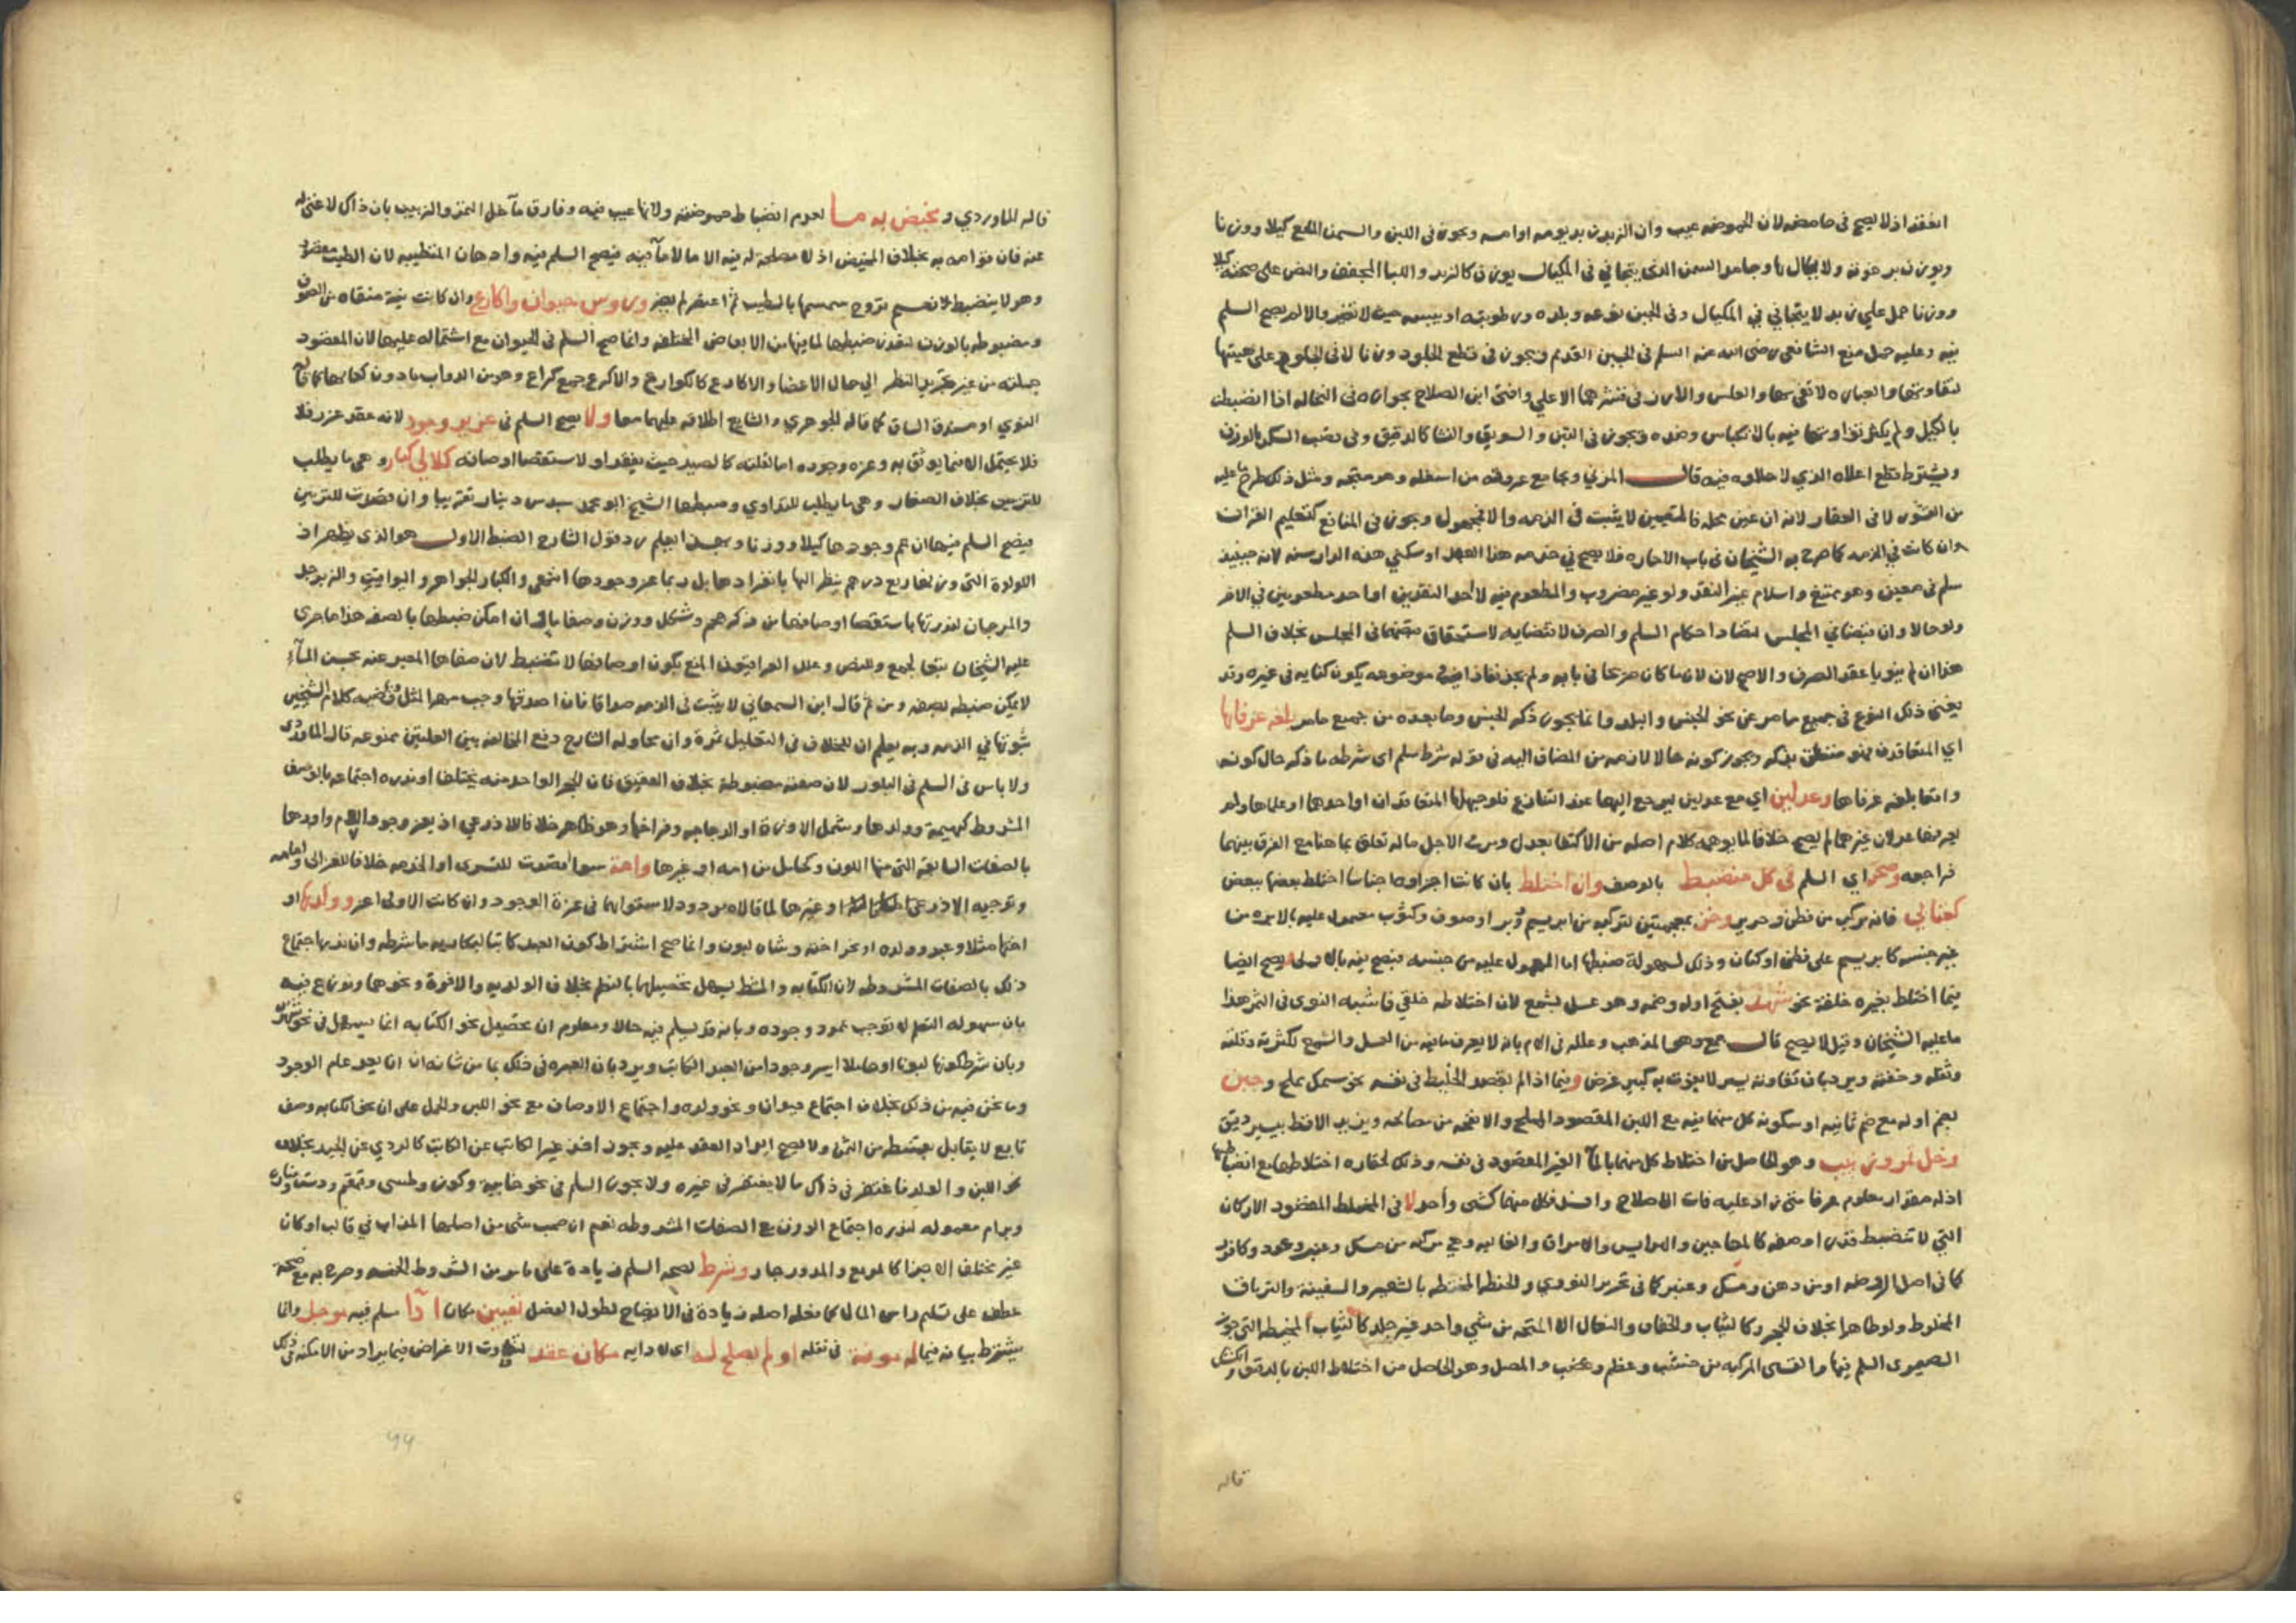 انعقد اذ لا يصح فى حامضه لان الحموضه عيب وان الزبد زبد يومه او امسه ويجوز فى اللبن والسمن المايع كيلا ووزنا
ويوزن برغوته ولا يكال بها وجامد السمن الذى يتجافي فى المكيال يوزن كالزبد واللبا المجفف والنص على صحته كيلا
ووزنا حمل على زبد لا يتجافي في المكيال وفى الجبن نوعه وبلده ورطوبته او يبسه حيث لا تغير والا لم يصح السلم
فيه وعليه حمل منع الشافعى رضى الله عنه السلم فى الجبن القديم ويجوز فى قطع الجلود وزنا لا فى الجلود على هيئتها
لتفاوتها والعباره لا تفى بها والعلس والارز فى قشرهما الاعلي وافتى ابن الصلاح بجوازه فى النخاله اذا انضبطت
بالكيل ولم يكثر تفاوتها فيه بالانكباس وضده ويجوز فى التبن والسويق والنشا كالدقيق وفى قصب السكر بالوزن
ويشترط قطع اعلاه الذي لا حلاوه فيه قال المزني ومجامع عروقه من اسفله وهو متجه ومثل ذلك طرح ما عليه
من القشور لا فى العقار لانه ان عين محله فالمتعين لا يثبت فى الذمه والا فمجهول ويجوز فى المنافع كتعليم القران
وان كانت في الذمه كما صرح به الشيخان فى باب الاجاره فلا يصح في خدمه هذا العبد او سكني هذه الدار سنه لانه حينئذ
سلم فى معين وهو ممتنع واسلام غير النقد ولو غير مضروب والمطعوم فيه لا احد النقدين او احد مطعومين في الاخر
ولو حالا وان تقابضا في المجلس لتضاد احكام السلم والصرف لاقتضايه لاستحقاق قبضهما فى المجلس بخلاف السلم
هذا ان لم ينويا عقد الصرف والاصح لان لان ما كان صريحا فى بابه ولم يجد نفاذا في موضوعه يكون كنايه فى غيره وقد
يغنى ذلك النوع فى جميع ما مر عن نحو الجنس والبلد وانما يجوز ذكر الجنس وما بعده من جميع ما مر بلغه عرفاها
اي المتعاقدان فهو متعلق بذكر ويجوز كونه حالا لازمه من المضاف اليه فى قوله شرط سلم اى شرطه ما ذكر حال كونه
واقعا بلغه عرفاها وعدلين اي مع عدلين ليرجع اليهما عند التنازع فلو جهلها المتعاقدان او احدهما او علماها ولم
يعرفها عدلان غيرهما لم يصح خلافا لما يوهمه كلام اصله من الاكتفا بعدل ومرت الاجل ما له تعلق بما هنا مع الفرق بينهما
فراجعه وصح اي السلم فى كل منضبط بالوصف وان اختلط بان كانت اجزاوه اجناسا اختلط بعضها ببعض
كعتابي فانه مركب من قطن وحرير وخز بمعجمتين لتركبه من ابريسم ووبر او صوف وكثوب معمول عليه بالابره من
غير جنسه كابريسم على قطن او كتان وذلك لسهولة ضبطها اما المعمول عليه من جنسه فيصح فيه بالاولى ويصح ايضا
فيما اختلط بغيره خلقة نحو شهد بفتح اوله وضمه وهو عسل بشمع لان اختلاطه خلقي فاشبه النوى فى التمر هذا
ما عليه الشيخان وقيل لا يصح قال جمع وهو المذهب وعلله فى الام بانه لا يعرف ما فيه من العسل والشمع لكثرته وقلته
وثقله وخفته ويرد بان تفاوته يسير لا يفوت به كبير غرض وفيما اذا لم يقصد الخليط فى نفسه نحو سمك بملح وجبن
بضم اوله مع ضم ثانيه او سكونه كل منهما فيه مع اللبن المقصود الملح والانفحه من مصالحه ويزيد الاقط بيسير دقيق
وخل تمر وزبيب وهو الحاصل من اختلاط كل منهما بالمآ الغير المقصود فى نفسه وذلك لحقاره اختلاطهما مع انضباطها
اذ له مقدار معلوم عرفا متى زاد عليه فات الاصلاح وافسد فكل منهما كشى واحد لا فى المختلط المقصود الاركان
التي لا تنضبط قدرا وصفه كالمعاجين والهرايس والامراق والغاليه وهي مركبه من مسك وعنبر وعود وكافور
كما فى اصل الروضه او من دهن ومسك وعنبر كما فى تحرير النووي والحنطه المختلطه بالشعير والسفينة والترياق
المخلوط ولو طاهرا بخلاف الحجر وكالثياب والخفاف والنعال الا المتخذه من شي واحد غير جلد كالثياب المخيطه التي جوز
الصيمرى السلم فيها والقسى المركبه من خشب وعظم وعصب والمصل وهو الحاصل من اختلاط اللبن بالدقيق والكشك
قاله
قاله الماوردي ومخيض به مـا لعدم انضباط حموضته ولانها عيب فيه وفارق مآ خل التمر والزبيب بان ذاك لا غنى له
عنه فان قوامه به بخلاف المخيض اذ لا مصلحة له فيه اما ما لا مآ فيه فيصح السلم فيه وادهان المتطيبه لان الطيب مقصود
وهو لا ينضبط لا نعم بتروح سمسمها بالطيب ثم اعتصر لم يضر وروس حيوان واكارع وان كانت نيّة منقاه من الصوف
ومضبوطه بالوزن لتعذر ضبطها لما فيها من الابعاض المختلفه وانما صح السلم فى الحيوان مع اشتماله عليها لان المقصود
جملته من غير تجريد النظر الي حال الاعضا والاكارع كالكوارع والاكرع جمع كراع وهو من الدواب ما دون كعابها كما قاله
النووي او مستدق الساق كما قاله الجوهري والشايع اطلاقه عليهما معا ولا يصح السلم فى عزيز وجود لانه عقد غرر فلا
فلا يحتمل الا فيما يوثق به وعزه وجوده اما لقلته كالصيد حيث يفقد او لاستقصا اوصافه كلالي كبار وهى ما يطلب
للتزيين بخلاف الصغار وهى ما يطلب للتداوي وضبطها الشيخ ابو محمد بسدس دينار تقريبا وان قصدت للتزيين
فيصح السلم فيها ان عم وجودها كيلا ووزنا وبهذا يعلم رد قول الشارح الضبط الاول هو الذى يظهر اذ
اللولوة التى وزنها ربع درهم ينظر اليها بانفرادها بل ربما عز وجودها انتهى والكبار الجواهر واليواقيت والزبرجد
والمرجان لندرتها باستقصا اوصافها من ذكر حجم وشكل ووزن وصفا بل ان امكن ضبطها بالصفه هذا ما جرى
عليه الشيخان تبعا لجمع وبعض وعلل العراقيون المنع بكون اوصافها لا تنضبط لان صفاها المعبر عنه بحسن المآء
لا يمكن ضبطه بصفه ومن ثم قال ابن السمعاني لا يثبت فى الذمه صداقا فان اصدقها وجب مهر المثل وقضيه كلام الشيخين
ثبوتها في الذمه وبه يعلم ان للخلاف فى التعليل ثمرة وان محاوله الشارح دفع المخالفه بين العلتين ممنوعه قال الماوردى
ولا باس فى السلم فى البلور لان صفته مضبوطة بخلاف العقيق فان الحجر الواحد منه يختلف او ندره اجتماعه بالوصف
المشروط كبهيمة وولدها وشمل الاوزة او الدجاجه وفراخها وهو ظاهر خلافا للاذرعي اذ يعز وجود الام واولادها
بالصفات السابقه التى منها اللون وكحامل من امه او غيرها وامة سوا قصدت للتسرى او الخدمه خلافا للغزالى وامامه
وتوجيه الاذرعى او غيرها لما قالاه مردود لاستوايهما فى عزة الوجود وان كانت الاولى اعز وولدها او
اختها مثلا وعبد وولده او نحو اخته وشاه لبون وانما صح اشتراط كون العبد كاتبا لبكاديه ما شرطه وان ندر اجتماع
ذلك بالصفات المشروطه لان الكتابه والخط يسهل تحصيلها بالتعلم بخلاف الولديه والاخوة ونحوها ونوزع فيه
بان سهوله التعلم لا توجب عدم وجوده وبانه قد يسلم فيه حالا ومعلوم ان تحصيل نحو الكتابه انما يسهل فى نحو
وبان شرط كونها لبونا او حاملا ايسر وجودا من العبد الكاتب ويرد بان العبره فى ذلك بما من شانه ان لا يعد عام الوجود
وما نحن فيه من ذلك بخلاف اجتماع حيوان ونحو ولده واجتماع الاوصاف مع نحو اللبن والحمل على ان نحو الكتابه وصف
تابع لا يقابل بقسط من الثمن ولا يصح ايراد العقد عليه ويجوز اخذ غير الكاتب عن الكاتب كالردي عن الجيد بخلاف
نحو اللبن والولد فاغتفر فى ذاك ما لا يغتفر فى غيره ولا يجوز السلم فى نحو خابية وكوز وطس وقمقم وطست ومناره
وبرام معموله لندره اجتماع الوزن مع الصفات المشروطه نعم ان صب شى من اصلها المذاب في قالب او كان
غير مختلف الاجزا كالمربع والمدور جاز وشرط لصحه السلم زيادة على ما مر من الشروط الخمسه وصرح به مع صحه
عطف على تسليم راس المال كما فعله اصله زيادة فى الايضاح لطول الفصل تعيين مكان ادآ مسلم فيه موجل وانما
يشترط بيانه فيما له مونة فى نقله او لم يصلح لـه اى لادايه مكان عقد لتفاوت الاغراض فيما يراد من الامكنه فى ذلك